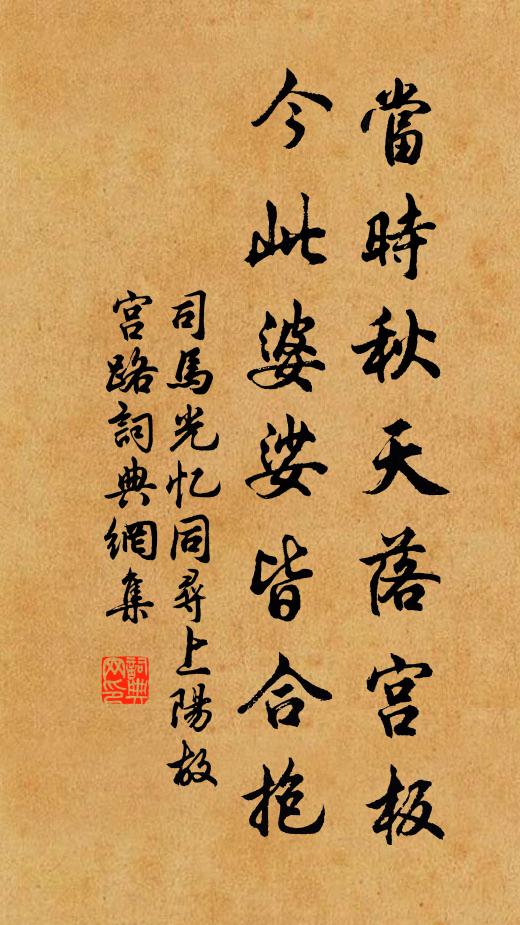 當時秋天落宫板
今此婆娑皆合抱
司馬光忆同尋上陽故
宫路詞典網集
詞典
网印